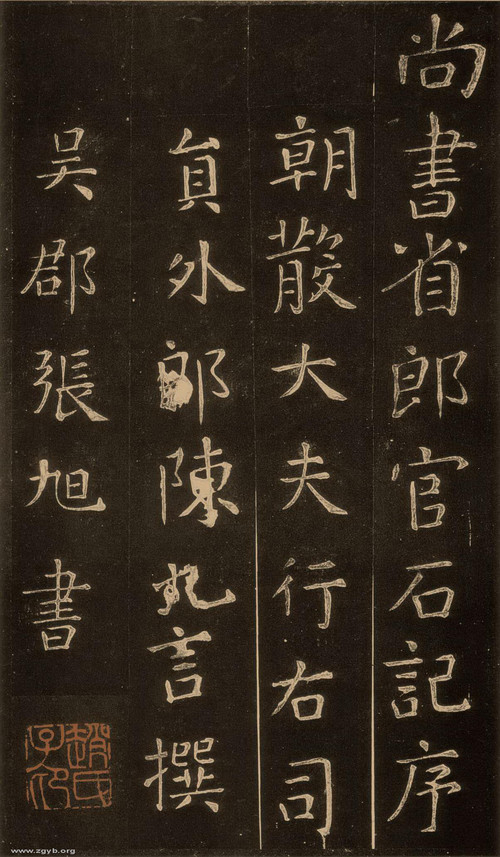 尚書省郎官石記序
朝散大夫行右司
員外郎陳九言撰
吳郡張旭書
www.zgyb.org